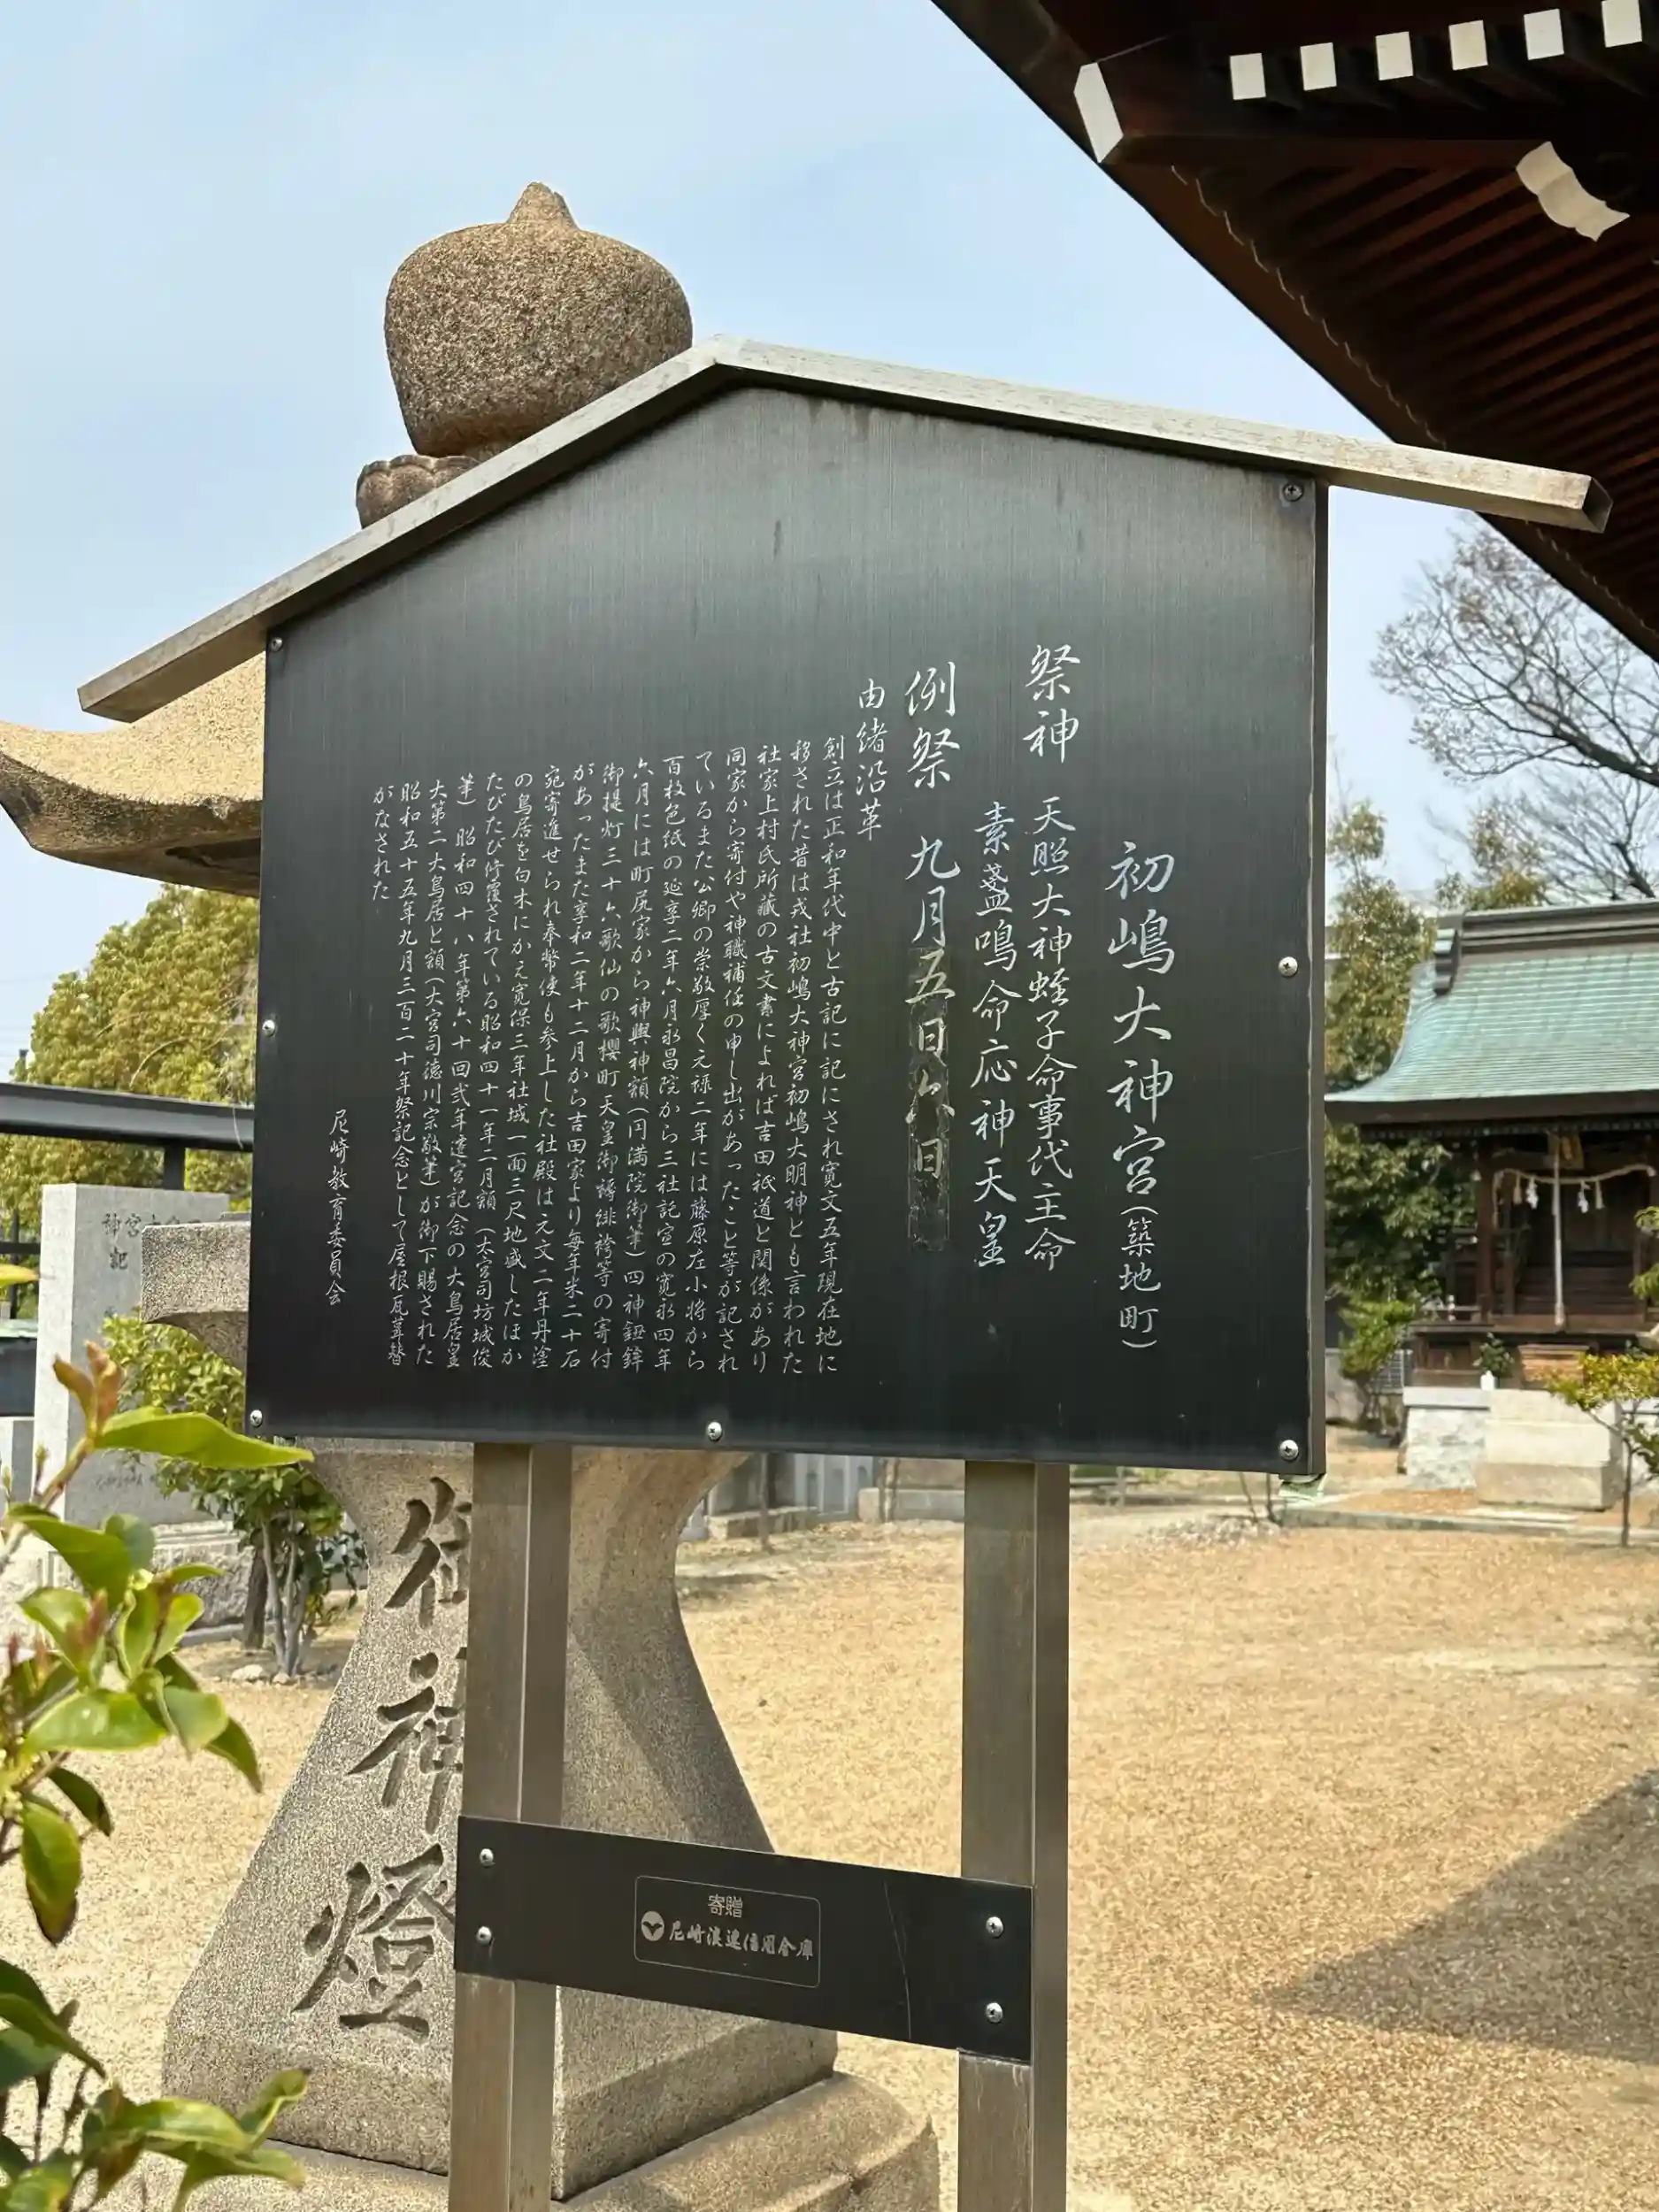 初嶋大神宮(築地町)
祭神 天照大神蛭子命事代主命
素盞鳴命応神天皇
例祭 九月五日六日
由緒沿革
創立は正和年代中と古記に記にされ寛文五年現在地に
移された昔は戎社初嶋大神宮初嶋大明神とも言われた
社家上村氏所蔵の古文書によれば吉田祇道と関係があり
同家から寄付や神職補任の申し出があったこと等が記され
ているまた公卿の崇敬厚く元禄二年には藤原左小将から
百枚色紙の延享二年六月永昌院から三社託宣の寛永四年
六月には町尻家から神輿神額(円満院御筆)四神鉾
御提灯三十六歌仙の歌櫻町天皇御緋袴等の寄付
があったまた享和二年十二月から吉田家より毎年米二十石
宛寄進せられ奉幣使も参上した社殿は元文二年丹塗
の鳥居を白木にかえ寛保三年社域一面三尺地盛したほか
たびたび修覆されている昭和四十一年二月額(大宮司坊城俊
筆) 昭和四十八年第六十回弐年遷宮記念の大鳥居皇
大第二大鳥居と額(大宮司徳川宗敬筆)が御下賜された
昭和五十五年九月三百二十年祭記念として屋根瓦葺替
がなされた
尼崎教育委員会
寄贈
尼崎浪速信用金庫
御神燈
神宮
記